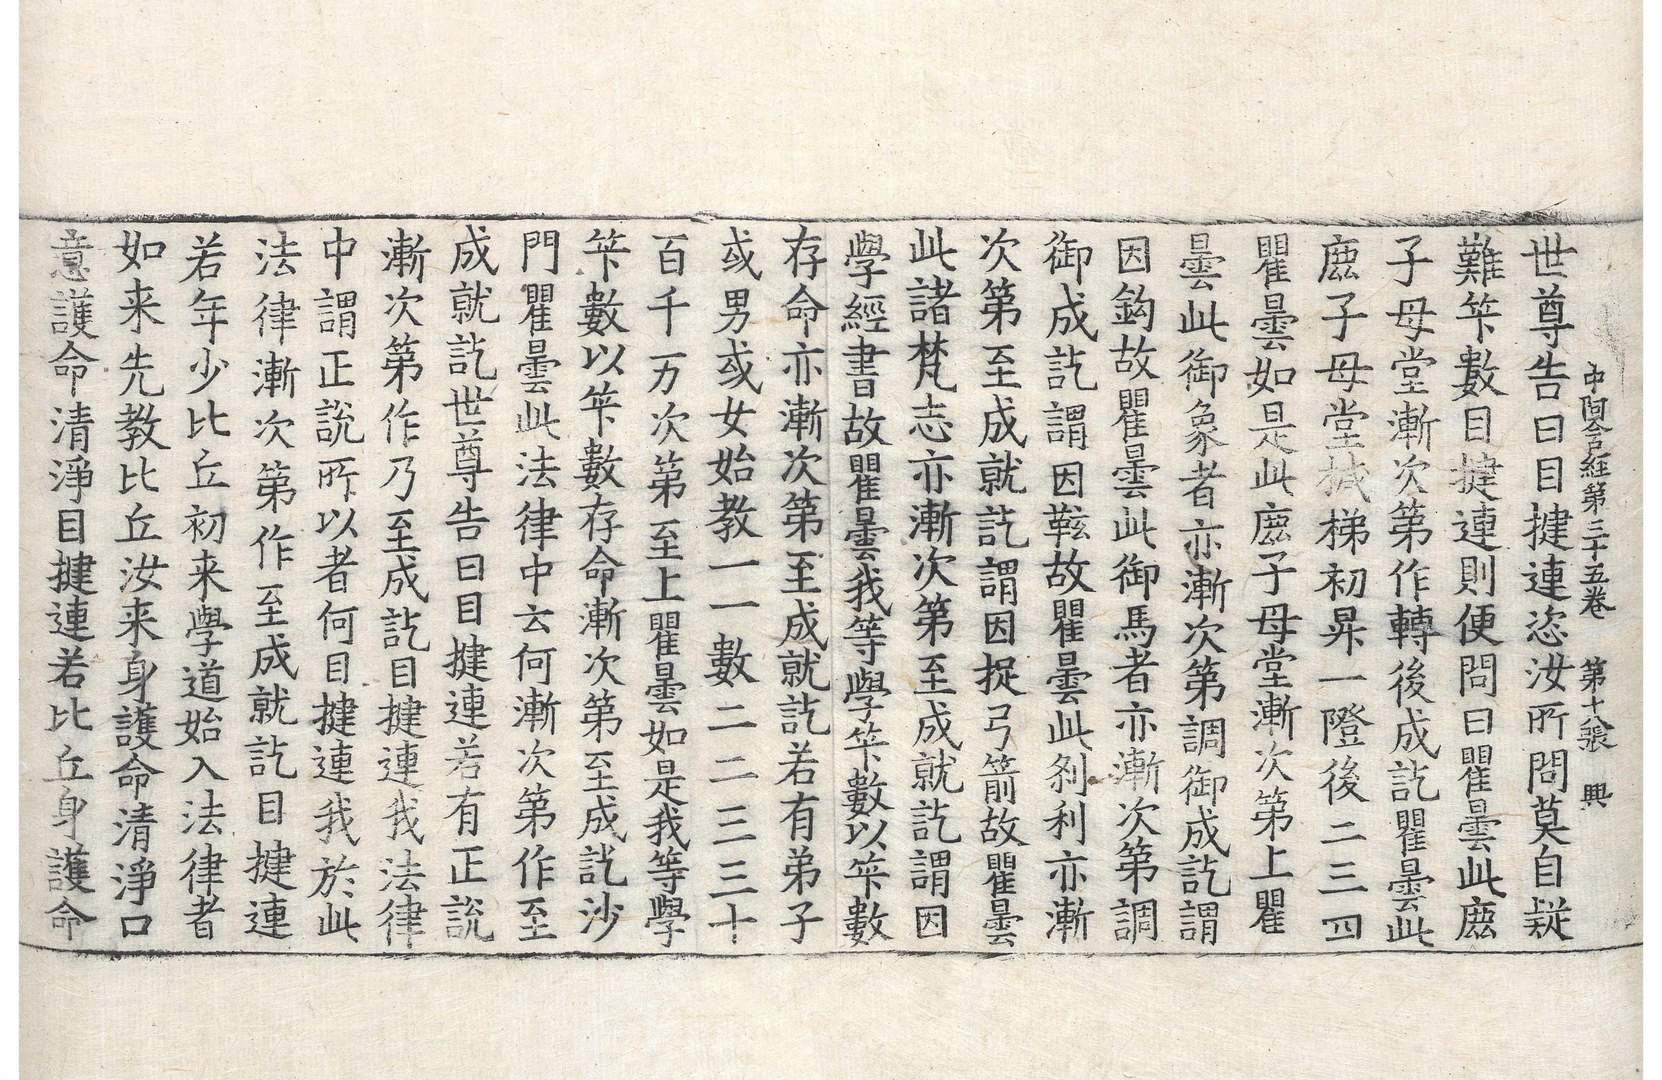 中阿含經第三十五卷　第十八張　興
世尊告曰目揵連恣汝所問莫自疑
難筭數目揵連則便問曰瞿曇此鹿
子母堂漸次第作轉後成訖瞿曇此
鹿子母堂椷梯初昇一隥後二三四
瞿曇如是此鹿子母堂漸次第上瞿
曇此御象者亦漸次第調御成訖謂
因鈎故瞿曇此御馬者亦漸次第調
御成訖謂因鞍故瞿曇此刹利亦漸
次第至成就訖謂因捉弓箭故瞿曇
此諸梵志亦漸次第至成就訖謂因
學經書故瞿曇我等學筭數以筭數
存命亦漸次第至成就訖若有弟子
或男或女始教一一數二二三三十
百千万次第至上瞿曇如是我等學
筭數以筭數存命漸次第至成訖沙
門瞿曇此法律中云何漸次第作至
成就訖世尊告曰目揵連若有正說
漸次第作乃至成訖目揵連我法律
中謂正說所以者何目揵連我於此
法律漸次第作至成就訖目揵連
若年少比丘初来學道始入法律者
如来先教比丘汝来身護命清淨口
意護命清淨目揵連若比丘身護命